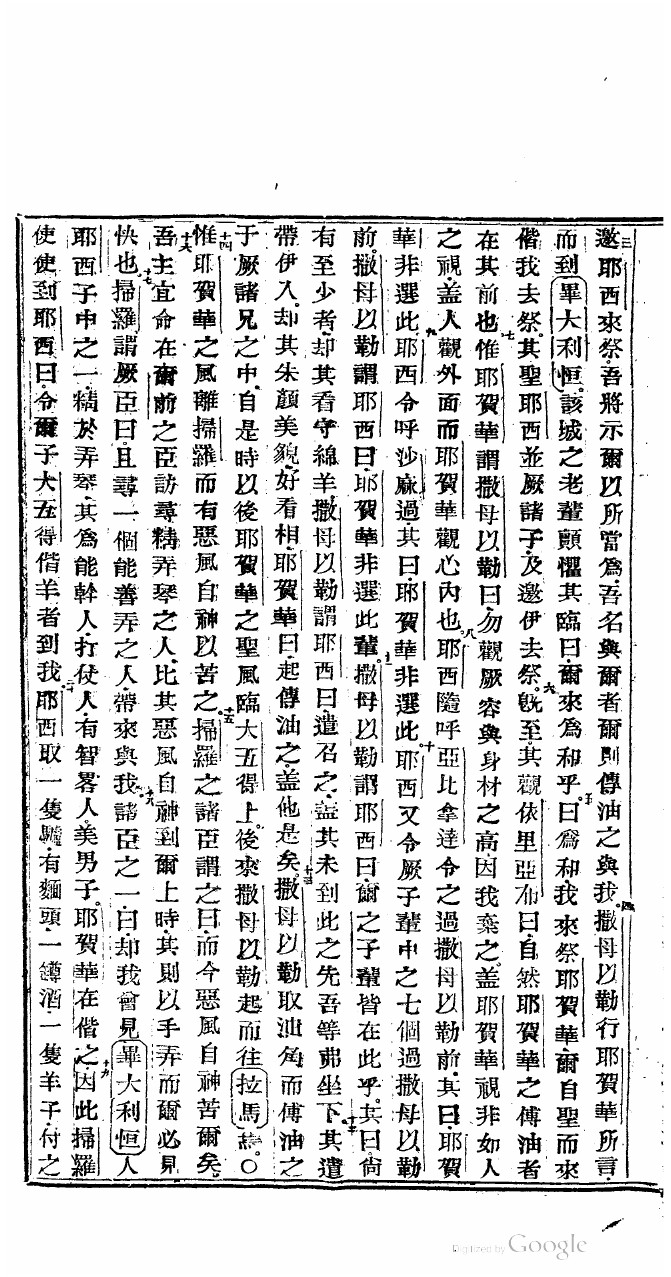 三邀耶西來祭吾將示爾以所當爲吾名與爾者爾則傳油之與我四撒母以勒行耶賀華所言
而到畢大利恒該城之老輩顫懼其臨曰爾來爲和乎五曰爲和我來祭耶賀華爾自聖而來
偕我去祭其聖耶西並厥諸子及邀伊去祭六旣至其觀依里亞布曰自然耶賀華之傅油者
在其前也七惟耶賀華謂撒母以勒曰勿觀厥容與身材之高因我棄之蓋耶賀華視非如人
之視蓋人觀外面而耶賀華觀心內也八耶西隨呼亞比拿達令之過撒母以勒前其曰耶賀
華非選此九耶西令呼沙麻過其曰耶賀華非選此十耶西又令厥子輩中之七個過撒母以勒
前撒母以勒謂耶西曰耶賀華非選此輩十一撒母以勒謂耶西曰爾之子輩皆在此乎其曰尙
有至少者却其看守綿羊撒母以勒謂耶西曰遣召之蓋其未到此之先吾等弗坐下十二其遣
帶伊入却其朱顏美貌好看相耶賀華曰起傳油之蓋他是矣十三撒母以勒取油角而傅油之
于厥諸兄之中自是時以後耶賀華之聖風臨大五得上後來撒母以勒起而往拉馬○
十四惟耶賀華之風離掃羅而有惡風自神以苦之十五掃羅之諸臣謂之曰而今惡風自神苦爾矣
十六吾主宜命在爾前之臣訪尋精弄琴之人比其惡風自神到爾上時其則以手弄而爾必見
快也十七掃羅謂厥臣曰且尋一個能善弄之人帶來與我十八諸臣之一曰却我會見畢大利恒人
耶西子中之一精於弄琴其爲能幹人打仗人有智畧人美男子耶賀華在偕之十九因此掃羅
使使到耶西曰令爾子大五得偕羊者到我二十耶西取一隻驢有麵頭一罇酒一隻羊子付之
Digitized by Google